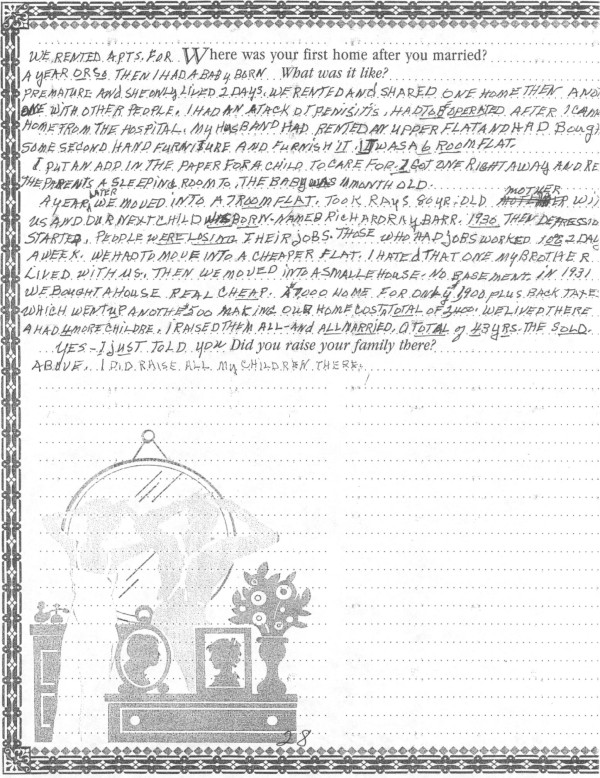 WE RENTED APTS. FOR Where was your first home after you married?
A YEAR OR SO. THEN I HAD A BABY BORN What was it like?
PREMATURE AND SHE ONLY LIVED 2 DAYS. WE RENTED AND SHARED ONE HOME THEN ANO
ONE WITH OTHER PEOPLE. I HAD AN ATACK OF PENISITIS, HAD TO BE OPERATED AFTER I CAM
HOME FROM THE HOSPITAL, MY HUSBAND HAD RENTED AN UPPER FLAT AND HAD Bough
SOME SECOND HAND FURNITURE AND FURNISH IT. IT WAS A 6 ROOM FLAT.
I PUT AN ADD IN THE PAPER FOR A CHILD TO CARE FOR. I GOT ONE RIGHT AWAY AND RE
THE PARENTS A SLEEPING ROOM TO, THE BABY WAS MONTH OLD.
A YEAR LATER, WE MOVED INTO A 7 ROOM FLAT. TOOK RAYS 80 YR. OLD MOTHER WI
US AND OUR NEXT CHILD WAS BORN - NAMED RICHARD RAY BARR. 1930. THEN DEPRESSIO
STARTED, PEOPLE WERE LOSING THEIR JOBS. THOSE WHO HAD JOBS WORKED 1 OR 2 DAY
A WEEK. WE HAD TO MOVE INTO A CHEAPER FLAT. I HATED THAT ONE MY BROTHER
LIVED WITH US. THEN WE MOVED INTO A SMALLE HOUSE. NO BASEMENT. IN 1931
WE BOUGHT A HOUSE REAL CHEAP. A 7000 HOME FOR ONLY $1900 PLUS BACK TAXE
WHICH WENT UP ANOTHE $500 MAKING OUR HOME COST A TOTAL OF 2400. WE LIVED THERE
A HAD 4 MORE CHILDRE, I RAISED THEM ALL - AND ALL MARRIED, A TOTAL of 43 YRS. THE SOLD.
YES - I JUST TOLD YOU Did you raise your family there?
ABOVE. I DID RAISE ALL MY CHILDREN THERE.
28